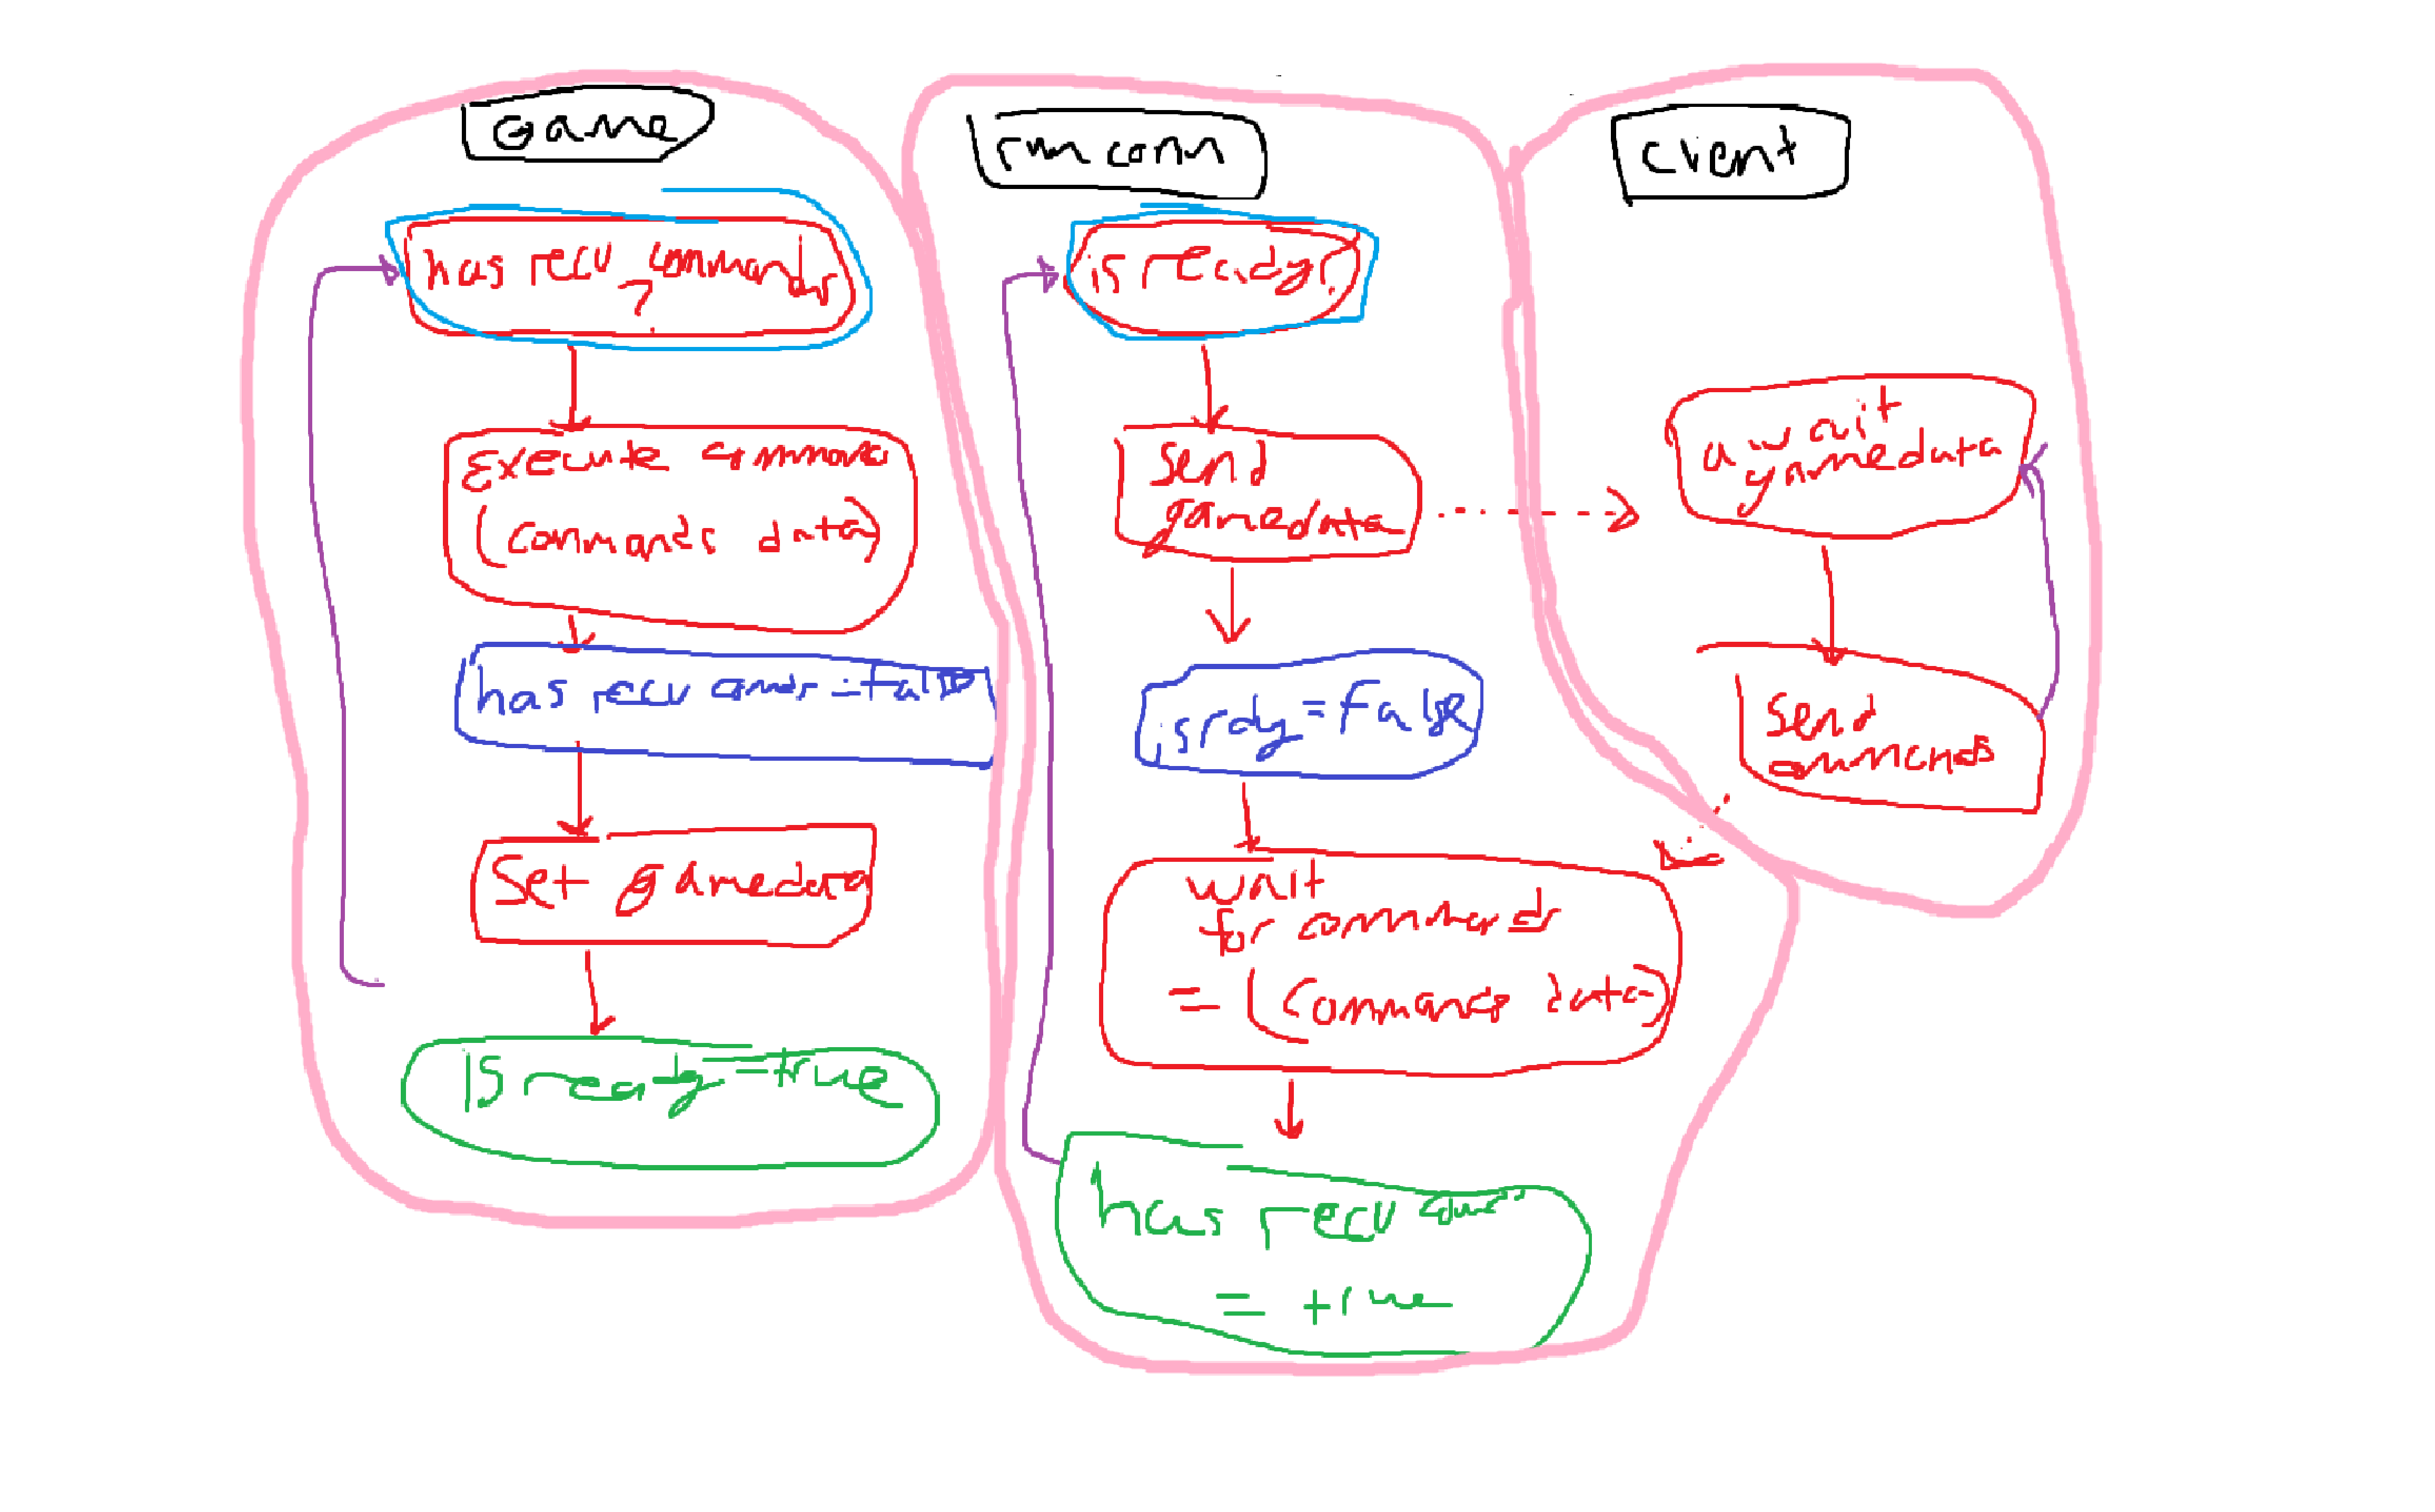 Game
has recv commands
?
Execute command
(commands data)
has recv = false
Set gamedata
is ready = true
rm conn
is ready?
Send
gamedata
is rdy = False
wait
for commands
= (Commands data)
has recv
= true
Client
await
gamedata
Send
commands